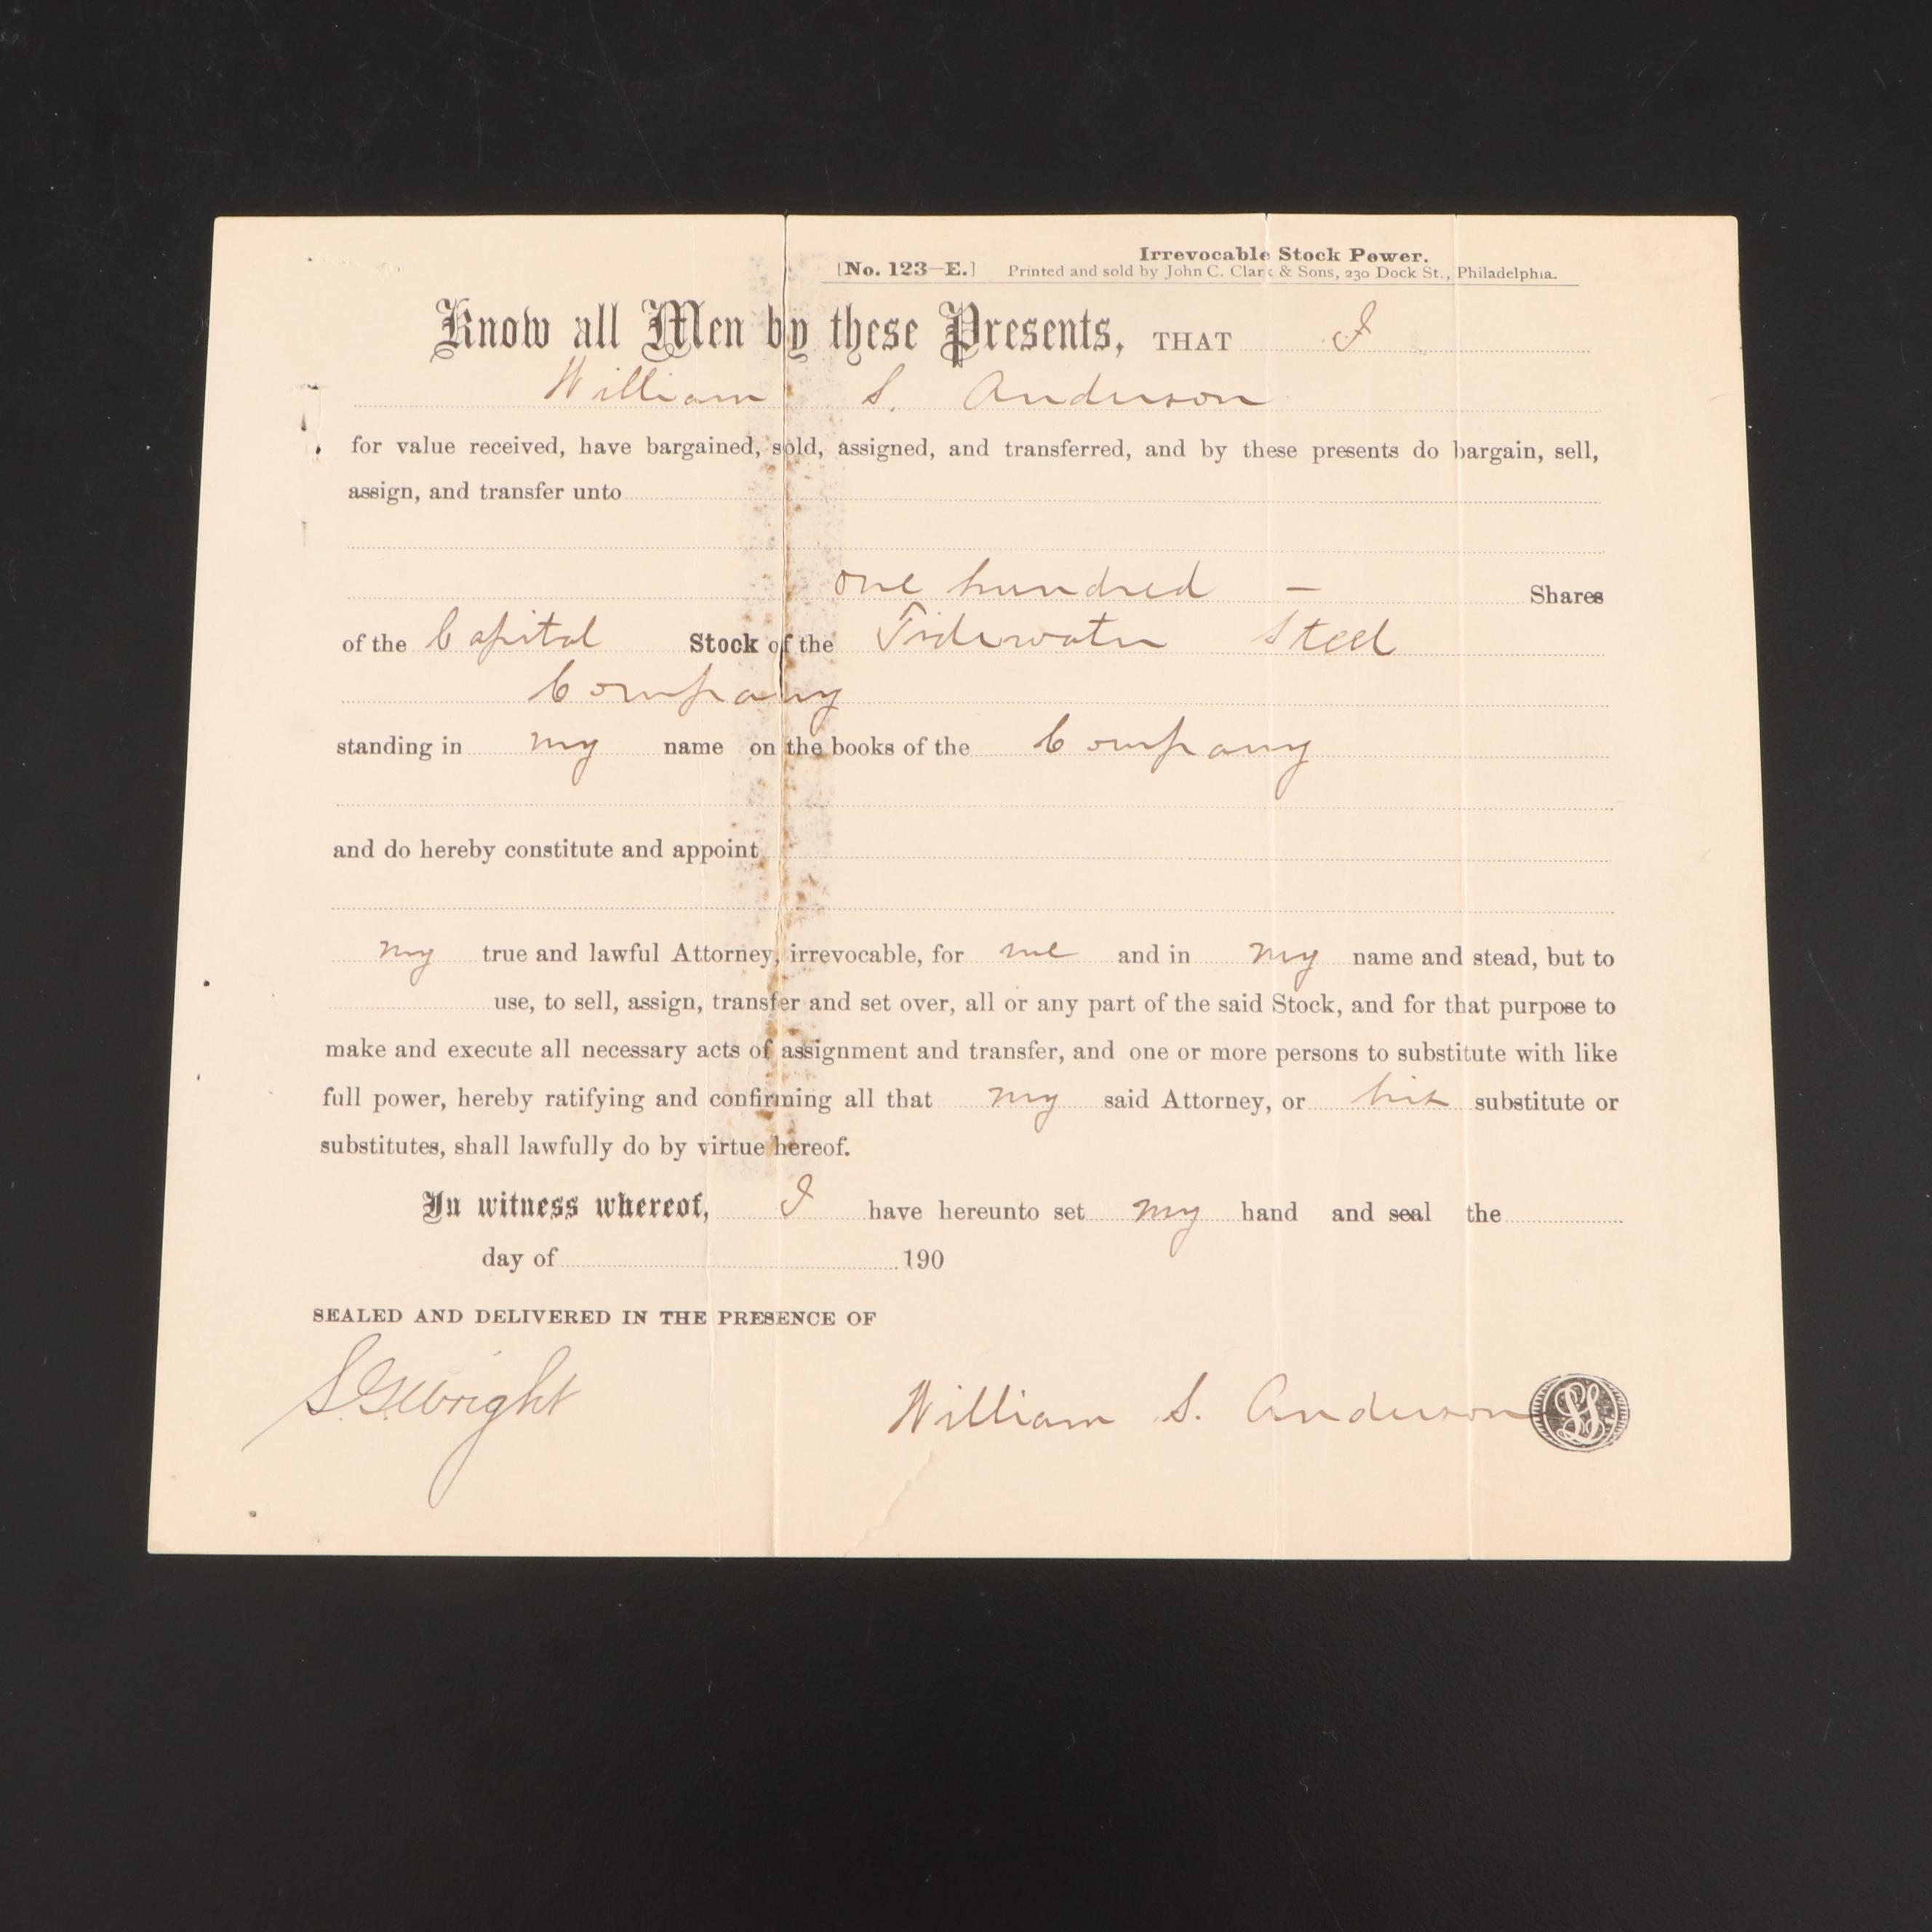 Irrevocable Stock Power.
[No. 123—E.] Printed and sold by John C. Clark & Sons, 230 Dock St., Philadelphia.
Know all Men by these Presents, THAT I
William S. Anderson
for value received, have bargained, sold, assigned, and transferred, and by these presents do bargain, sell,
assign, and transfer unto
one hundred — Shares
of the Capital Stock of the Tidewater Steel
Company
standing in my name on the books of the Company
and do hereby constitute and appoint
my true and lawful Attorney, irrevocable, for me and in my name and stead, but to
use, to sell, assign, transfer and set over, all or any part of the said Stock, and for that purpose to
make and execute all necessary acts of assignment and transfer, and one or more persons to substitute with like
full power, hereby ratifying and confirming all that my said Attorney, or his substitute or
substitutes, shall lawfully do by virtue hereof.
In witness whereof, I have hereunto set my hand and seal the
day of 190
SEALED AND DELIVERED IN THE PRESENCE OF
William S. Anderson LS